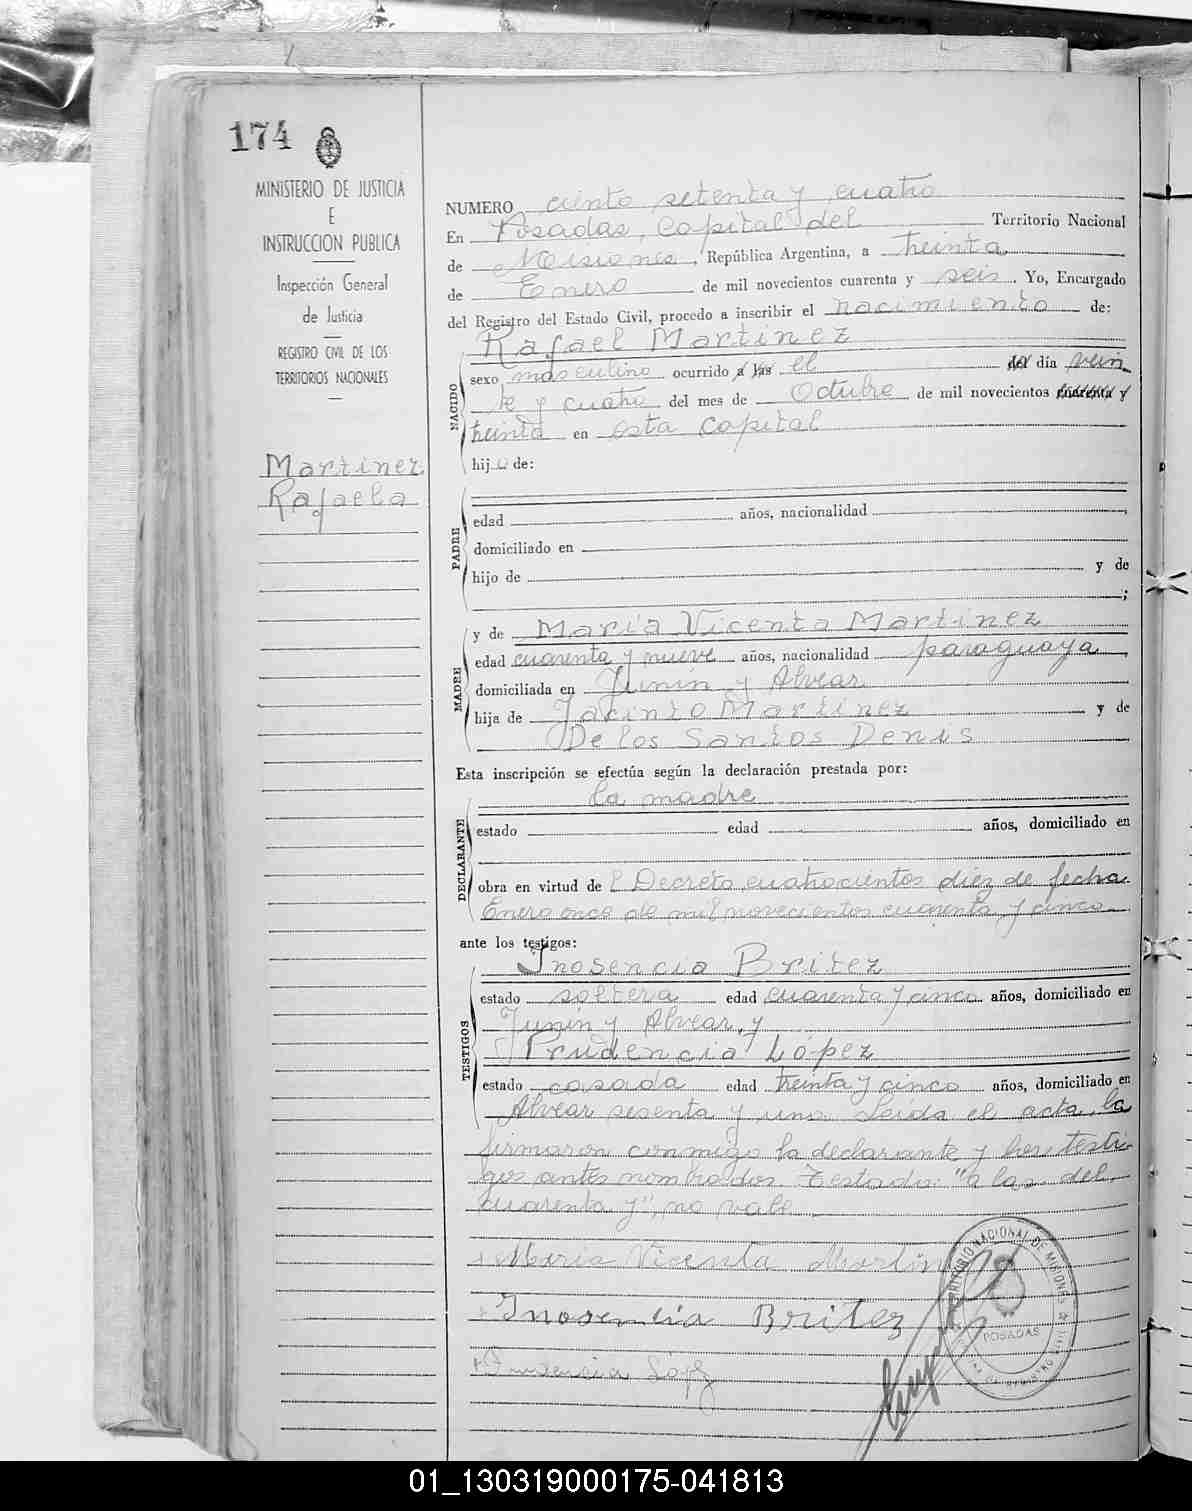 174
MINISTERIO DE JUSTICIA
E
INSTRUCCION PUBLICA
Inspección General
de Justicia
REGISTRO CIVIL DE LOS
TERRITORIOS NACIONALES
Martinez
Rafaela
NUMERO ciento setenta y cuatro
En Posadas, Capital del Territorio Nacional
de Misiones, República Argentina, a treinta
de Enero de mil novecientos cuarenta y seis. Yo, Encargado
del Registro del Estado Civil, procedo a inscribir el nacimiento de:
Rafael Martinez
NACIDO
sexo masculino ocurrido a las el del día vein
te y cuatro del mes de Octubre de mil novecientos cuarenta y
treinta en esta capital
hijo de:
PADRE
edad años, nacionalidad ,
domiciliado en
hijo de y de
;
MADRE
y de Maria Vicenta Martinez
edad cuarenta y nueve años, nacionalidad paraguaya,
domiciliada en Junin y Alvear
hija de Jacinto Martinez y de
De los Santos Denis
Esta inscripción se efectúa según la declaración prestada por:
DECLARANTE
la madre
estado edad años, domiciliado en
obra en virtud de l Decreto cuatrocientos diez de fecha
Enero once de mil novecientos cuarenta y cinco
ante los testigos:
TESTIGOS
Inosencia Britez
estado soltera edad cuarenta y cinco años, domiciliado en
Junin y Alvear, y
Prudencia López
estado casada edad treinta y cinco años, domiciliado en
Alvear sesenta y uno. Leida el acta, la
firmaron conmigo la declarante y los testi-
gos antes nombrados. Testado: "a las del,
cuarenta y", no vale
Maria Vicenta Martin
Inosencia Britez
Prudencia López
TERRITORIO NACIONAL DE MISIONES
POSADAS
01_130319000175-041813